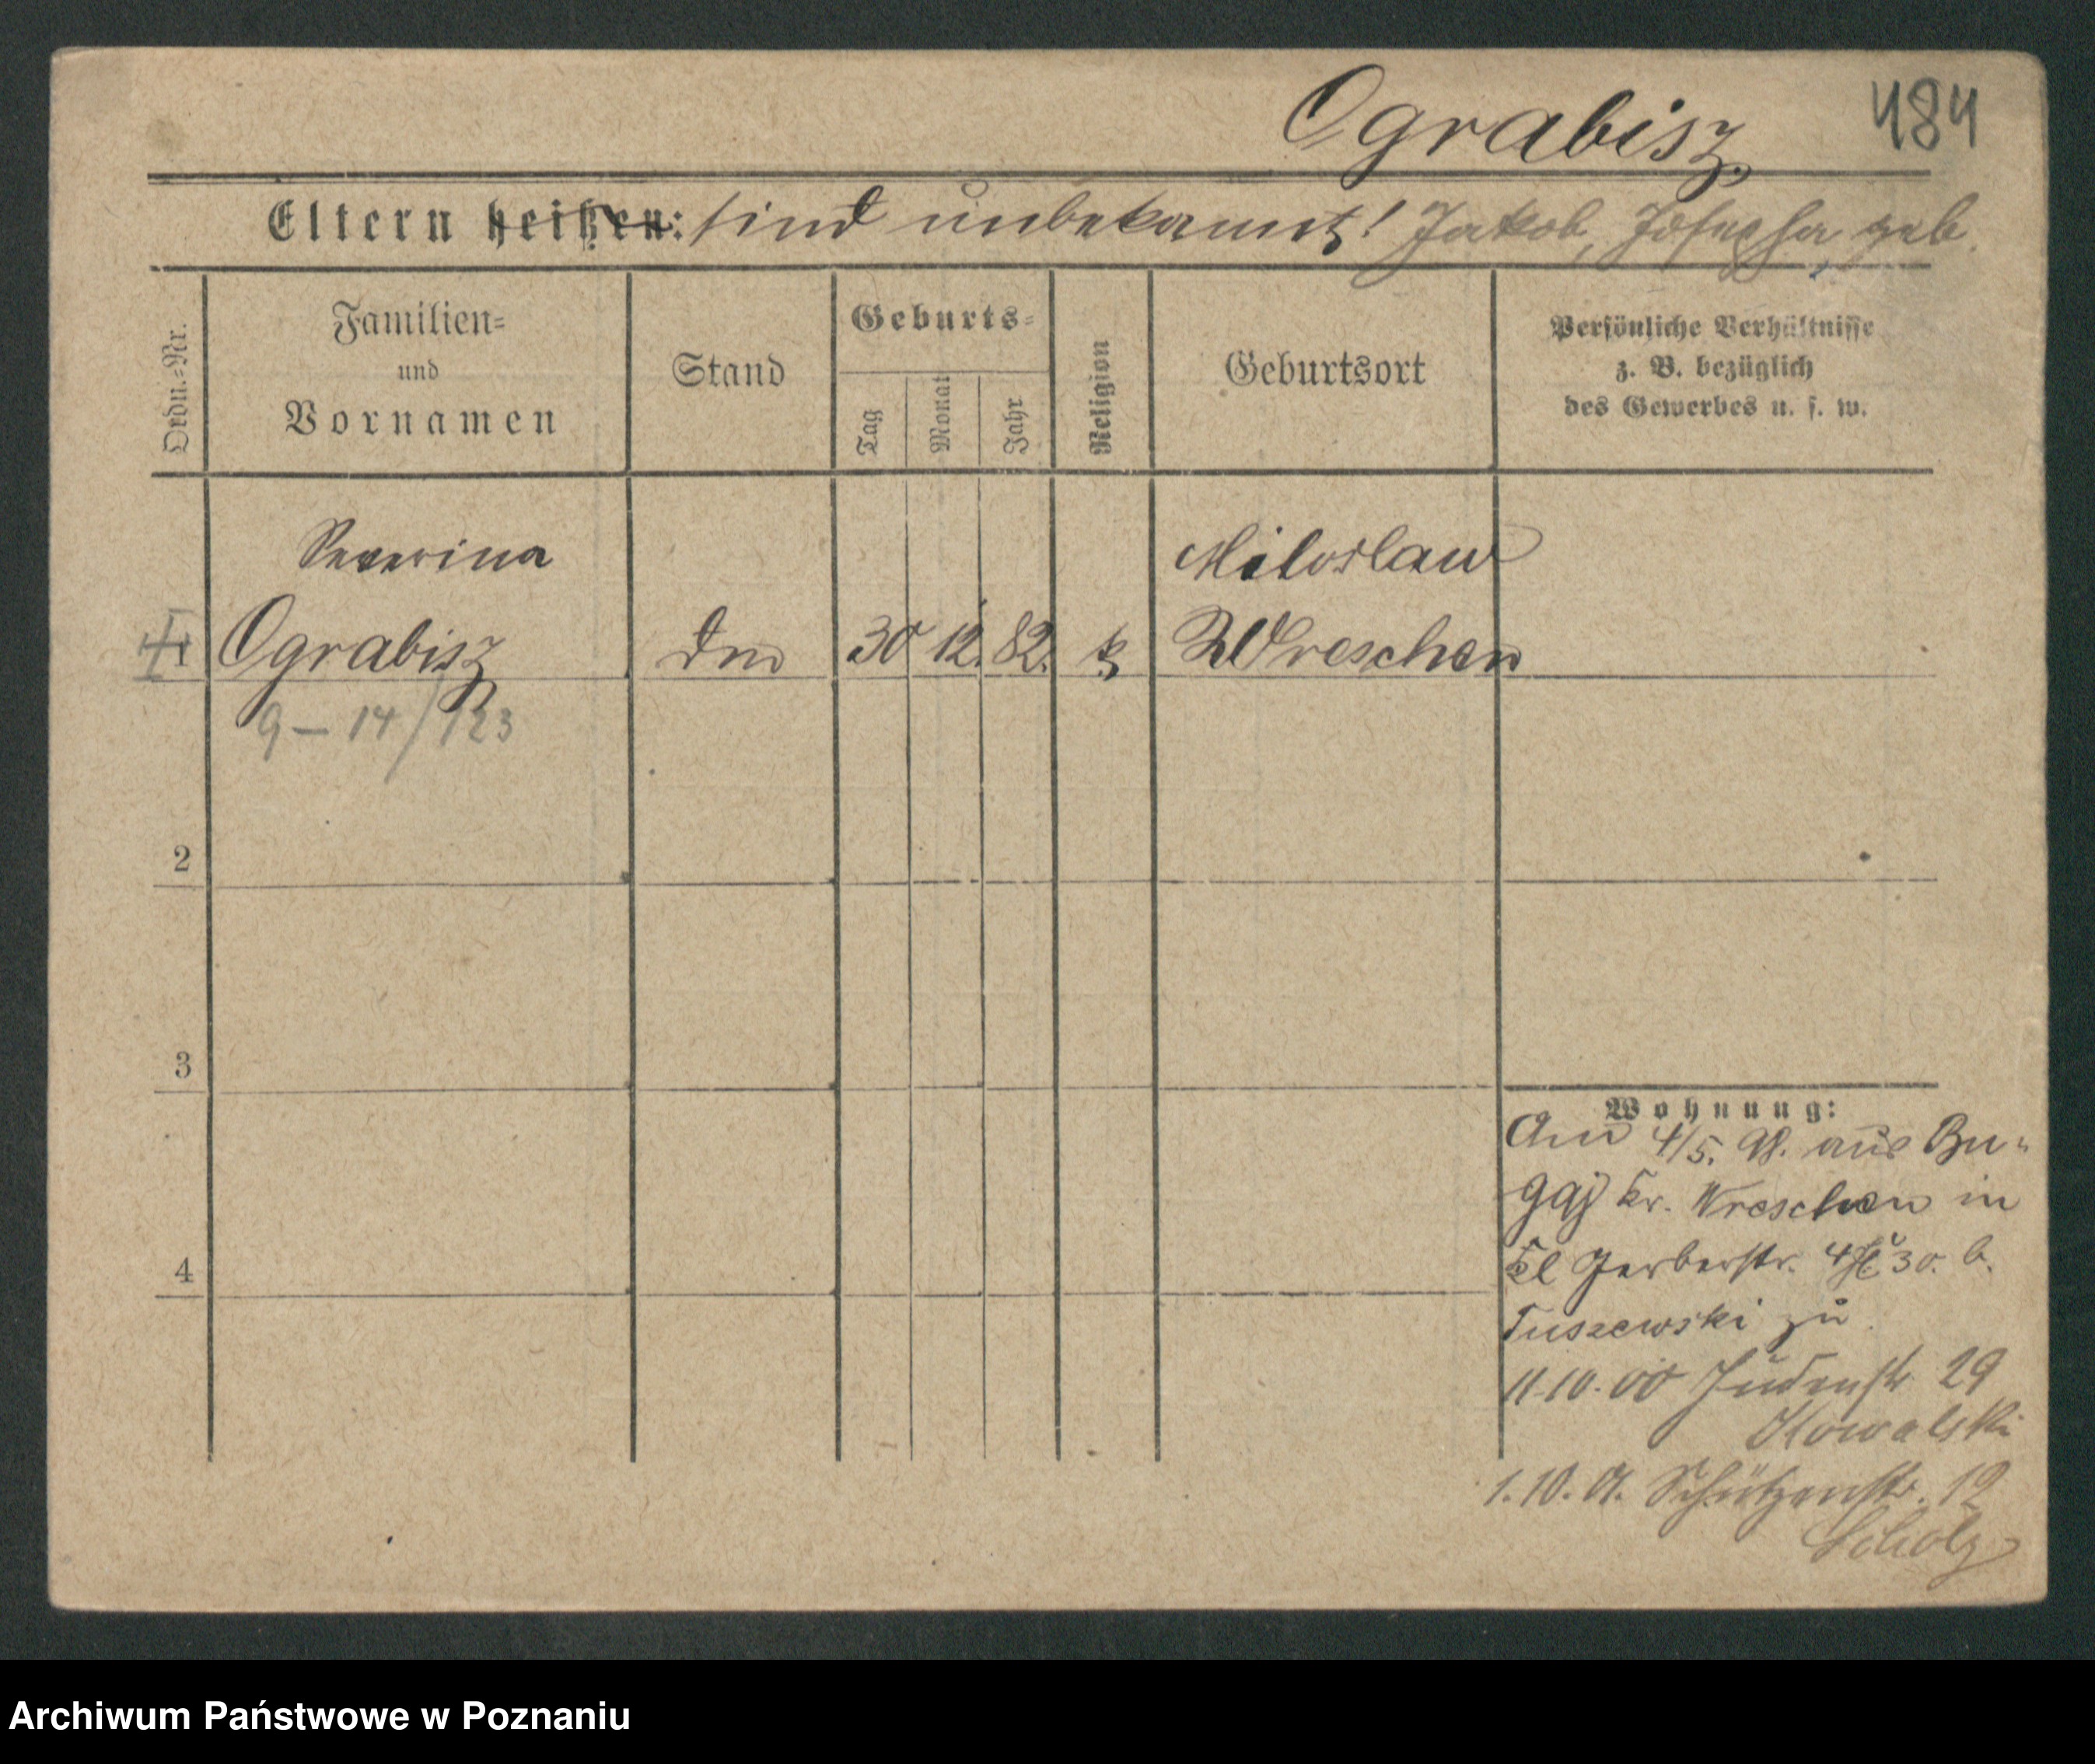 Ograbisz
484
Eltern heißen: sind unbekannt! Jakob, Josepha geb.
Ordn.-Nr.
Familien-
und
Vornamen
Stand
Geburts-
Tag
Monat
Jahr
Religion
Geburtsort
Persönliche Verhältnisse
z. B. bezüglich
des Gewerbes u. s. w.
Severina
Miloslaw
1 Ograbisz 30 12. 82. k Wreschen
9-14/123
2
3
4
Wohnung:
Am 4/5. 98. aus Bu-
gaj Kr. Wreschen in
Kl Gerberstr. 4 30. b.
Tuszewski zu
11.10.00 Judenstr 29
Kowalski
1.10.01. Schützenstr. 19
Scholz
Archiwum Państwowe w Poznaniu